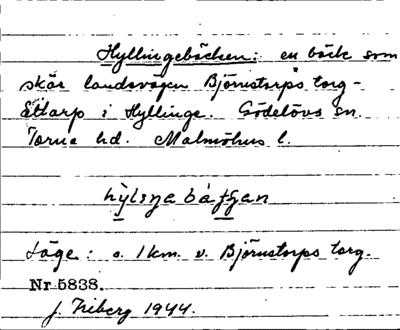 Hyllingebäcken: en bäck som
skär landsvägen Björnstorps torg-
Ättarp i Hyllinge. Gödelövs sn.
Torna hd. Malmöhus l.
Läge: o. 1 km. v. Björnstorps torg.
Nr 5838.
J. Friberg 1944.